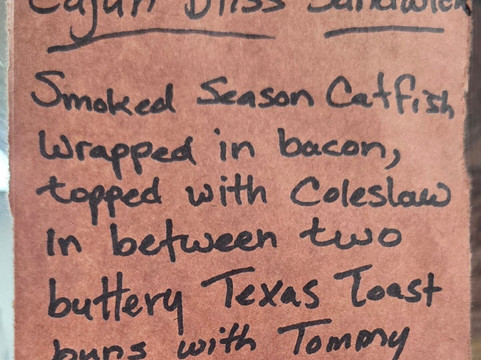 Cajun Bliss Sandwich
Smoked Season Catfish
Wrapped in bacon,
topped with Coleslaw
In between two
buttery Texas Toast
buns with Tommy